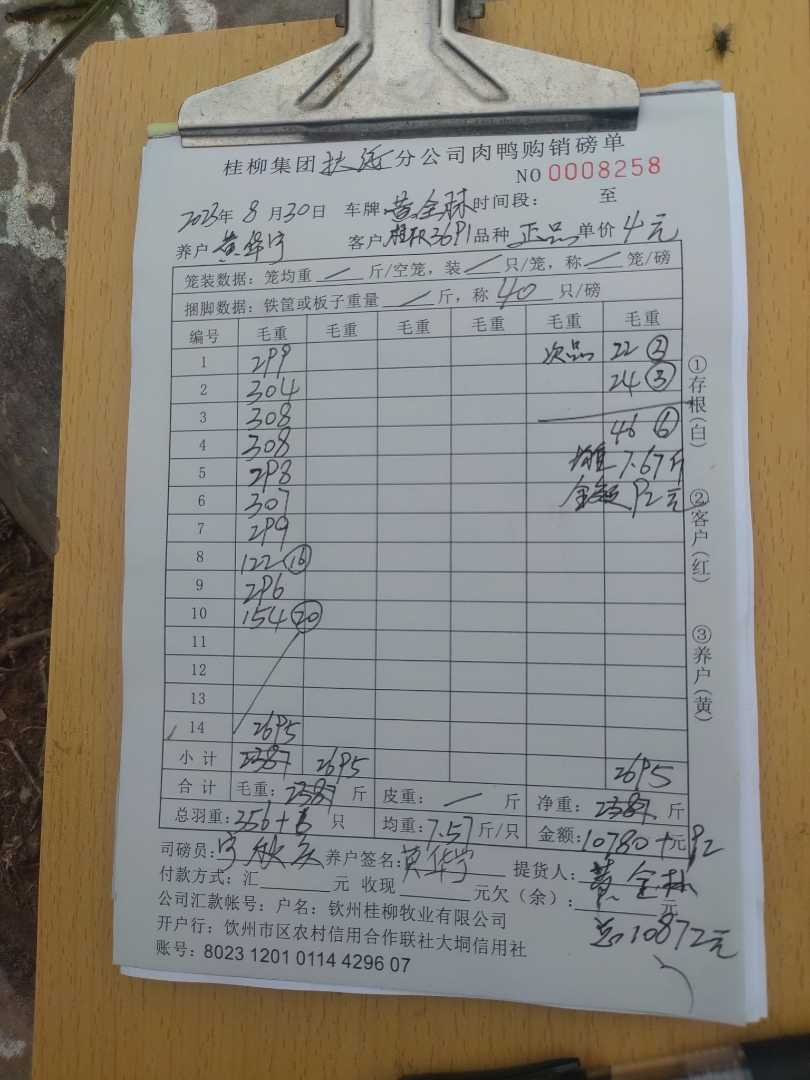 桂柳集团 分公司肉鸭购销磅单
NO 0008258
2023年 8 月 30 日 车牌 黄全林 时间段: 至
养户 黄华宁 客户 3691 品种 正品 单价 4元
笼装数据:笼均重 / 斤/空笼,装 / 只/笼,称 / 笼/磅
捆脚数据:铁筐或板子重量 / 斤,称 40 只/磅
编号 毛重 毛重 毛重 毛重 毛重 毛重
1 299 次品 22 ③
2 304 24 ③
3 308
4 308 46 ⑥
5 298 均重 7.67斤
6 307 金额 92元
7 299
8 122 ⑯
9 296
10 154 ⑳
11
12
13
14 2695
小计 2695 2695
合计 毛重: 斤 皮重: / 斤 净重: 斤
总羽重:356+6 只 均重:7.57斤/只 金额:10780+元92
司磅员: 养户签名:黄华宁 提货人:黄全林
付款方式:汇 元 收现 元欠(余): 元
公司汇款帐号:户名:钦州桂柳牧业有限公司
总10872元
开户行:钦州市区农村信用合作联社大垌信用社
账号:8023 1201 0114 4296 07
①存根(白)
②客户(红)
③养户(黄)